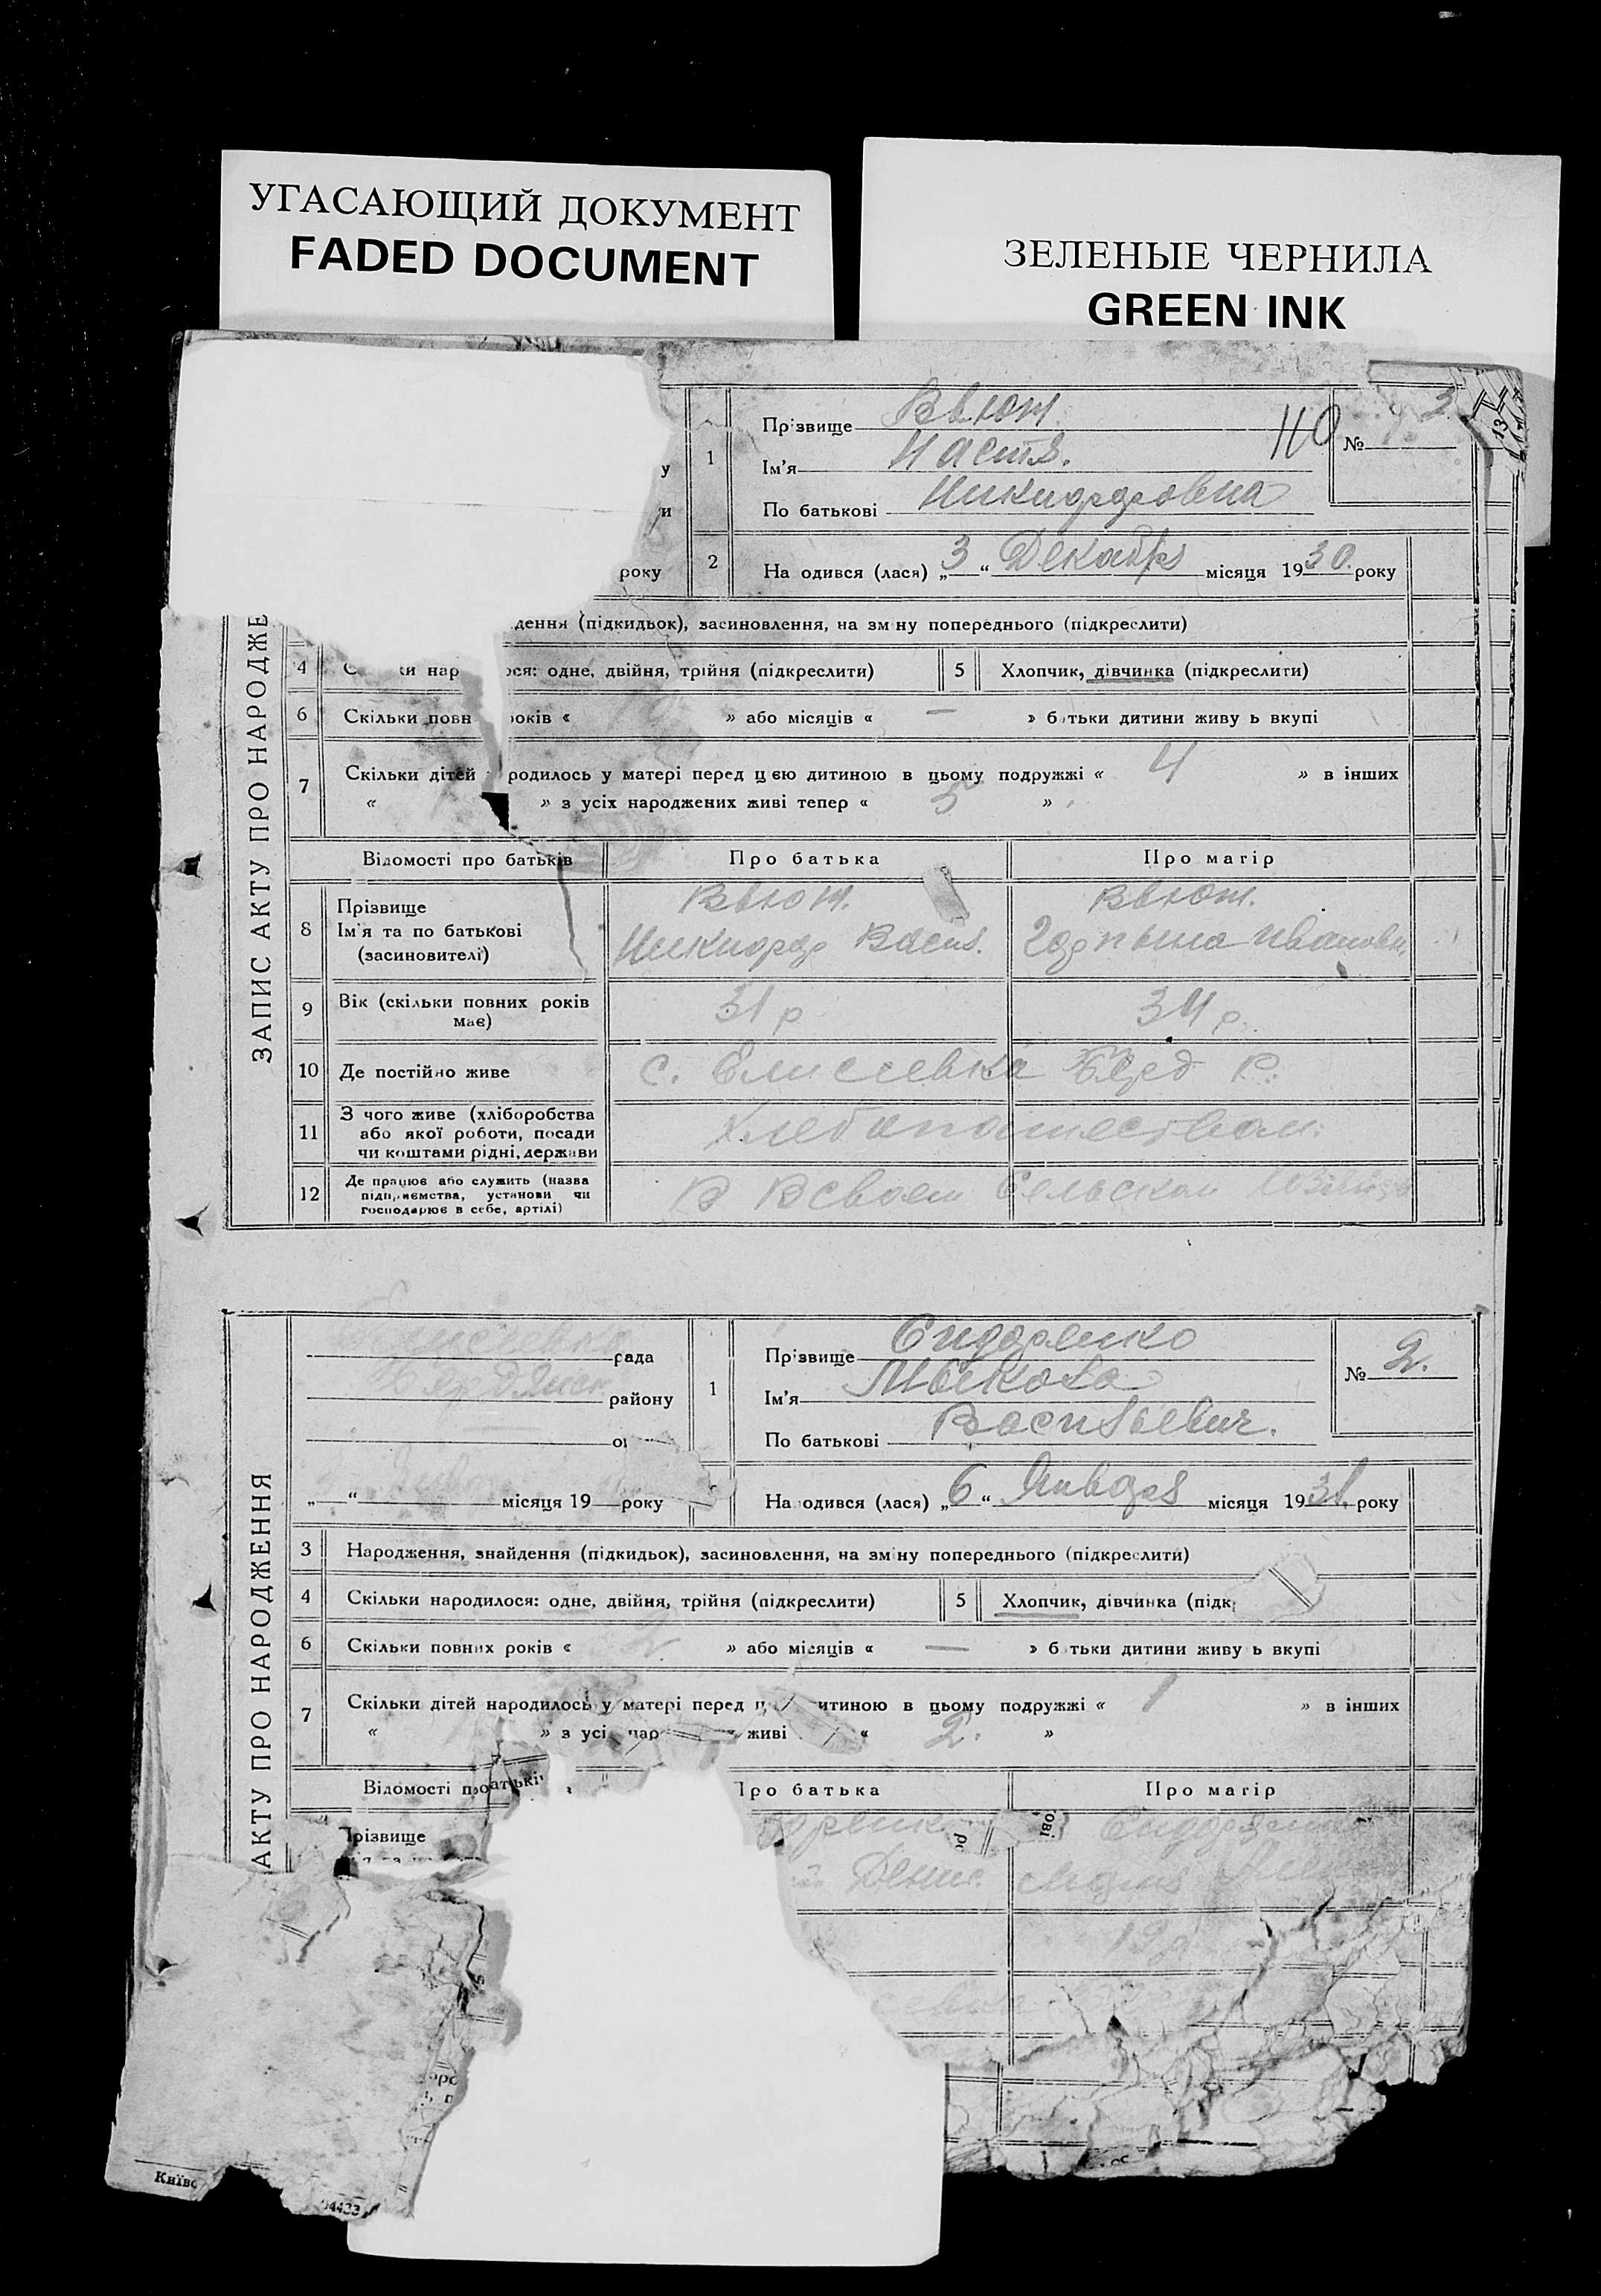 УГАСАЮЩИЙ ДОКУМЕНТ
FADED DOCUMENT
ЗЕЛЕНЫЕ ЧЕРНИЛА
GREEN INK
ЗАПИС АКТУ ПРО НАРОДЖЕ
у
и
року
1
Прізвище Ввют
Ім'я Настя.
По батькові Никифоровна
110
№ 3
13
2
На одився (лася) „3“ Декабря місяця 1930. року
дення (підкидьок), засиновлення, на зміну попереднього (підкреслити)
4 С ки нар ося: одне, двійня, трійня (підкреслити)
5 Хлопчик, дівчинка (підкреслити)
6 Скільки повн років « » або місяців « — » б тьки дитини живу ь вкупі
7 Скільки дітей родилось у матері перед цією дитиною в цьому подружжі « 4 » в інших
« » з усіх народжених живі тепер « 5 »
Відомості про батьків
Про батька
Про матір
8 Прізвище
Ім'я та по батькові
(засиновителі)
Ввют.
Никифор Васил.
Ввют.
Ивановн.
9 Вік (скільки повних років
має)
31 р
34 р.
10 Де постійно живе
с. Елисеевка Берд Р.
11 З чого живе (хліборобства
або якої роботи, посади
чи коштами рідні, держави
Хлебопашеством.
12 Де працює або служить (назва
підприємства, установи чи
господарює в себе, артілі)
В Своем Сельском
АКТУ ПРО НАРОДЖЕННЯ
Елисеевка рада
Бердянск району
о
„ “ місяця 19 року
1
Прізвище Сидоренко
Ім'я Мыкола
По батькові Васильевич.
№ 2.
На одився (лася) „6“ Января місяця 1931. року
3 Народження, знайдення (підкидьок), засиновлення, на зміну попереднього (підкреслити)
4 Скільки народилося: одне, двійня, трійня (підкреслити)
5 Хлопчик, дівчинка (підк
6 Скільки повних років « 2 » або місяців « — » б тьки дитини живу ь вкупі
7 Скільки дітей народилось у матері перед ц итиною в цьому подружжі « 1 » в інших
« » з усі нар живі « 2. »
Відомості про батьків
Про батька
Про матір
різвище
оренк
Денис.
Сидоренко
Мария
19
Київс
4433